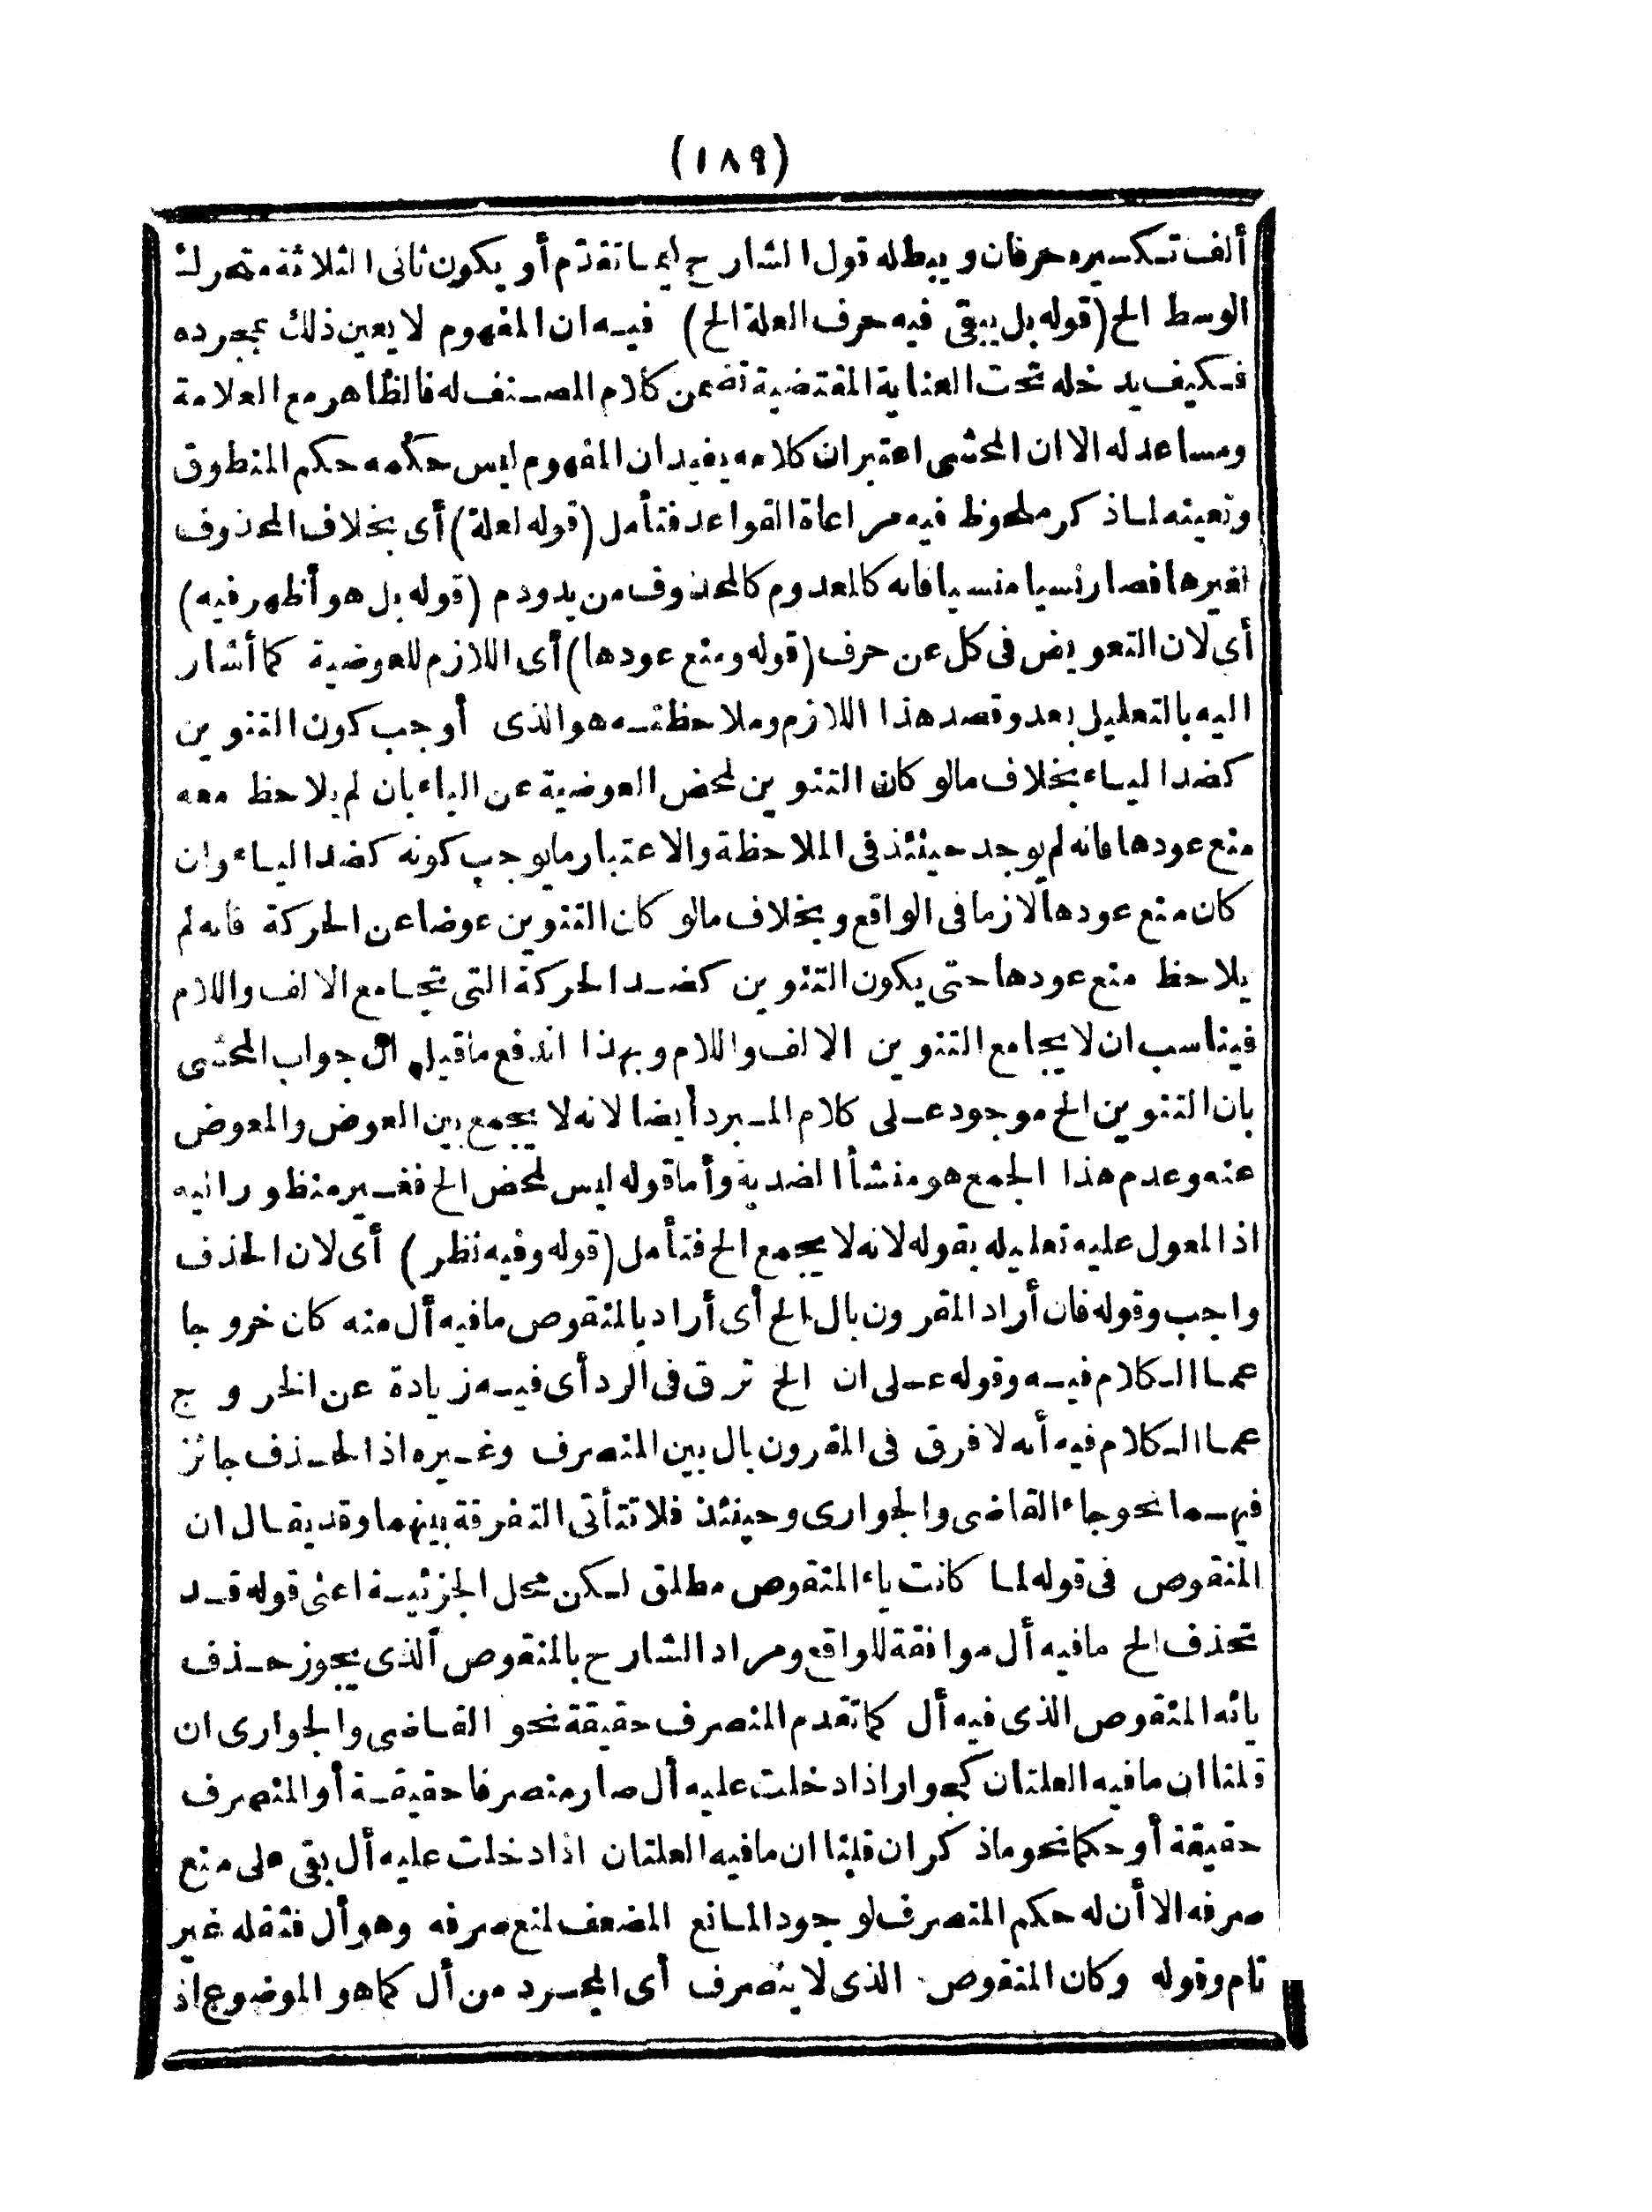 (١٨٩)
ألف تكسيره حرفان ويبطله قول الشارح فيما تقدّم أو يكون ثانى الثلاثة متحرك
الوسط الخ (قوله بل يبقى فيه حرف العلة الخ) فيه ان المفهوم لا يعين ذلك بمجرده
فكيف يدخله تحت العناية المقتضية تضمن كلام المصنف له فالظاهر مع العلامة
ومساعد له الا ان المحشى اعتبر ان كلامه يفيد ان المفهوم ليس حكمه حكم المنطوق
وتعينه لماذكر ملحوظ فيه مراعاة القواعد فتأمل (قوله لعلة) أى بخلاف المحذوف
لغيرها فصار نسيا منسيا فانه كالمعدوم كالمحذوف من يدودم (قوله بل هو أظهر فيه)
أى لان التعويض فى كل عن حرف (قوله ومنع عودها) أى اللازم للعوضية كما أشار
اليه بالتعليل بعد وقصد هذا اللازم وملاحظته هو الذى أوجب كون التنوين
كضد الياء بخلاف مالو كان التنوين لمحض العوضية عن الياء بان لم يلاحظ معه
منع عودها فانه لم يوجد حينئذ فى الملاحظة والاعتبار ما يوجب كونه كضد الياء وان
كان منع عودها لازما فى الواقع وبخلاف مالو كان التنوين عوضا عن الحركة فانه لم
يلاحظ منع عودها حتى يكون التنوين كضد الحركة التى تجامع الالف واللام
فيناسب ان لا يجامع التنوين الالف واللام وبهذا اندفع ما قيل ان جواب المحشى
بان التنوين الخ موجود على كلام المبرد أيضا لانه لا يجمع بين العوض والمعوض
عنه وعدم هذا الجمع هو منشأ الضدية وأما قوله ليس لمحض الخ فغير منظور اليه
اذ المعول عليه تعليله بقوله لانه لا يجمع الخ فتأمل (قوله وفيه نظر) أى لان الحذف
واجب وقوله فان أراد المقرون بال الخ أى أراد بالمنقوص ما فيه أل منه كان خروجا
عما الكلام فيه وقوله على ان الخ ترق فى الرد أى فيه زيادة عن الخروج
عما الكلام فيه أنه لا فرق فى المقرون بال بين المنصرف وغيره اذ الحذف جائز
فيهما نحو جاء القاضى والجوارى وحينئذ فلا تتأتى التفرقة بينهما وقد يقال ان
المنقوص فى قوله لما كانت ياء المنقوص مطلق لكن محل الجزئية اعنى قوله قد
تحذف الخ ما فيه أل موافقة للواقع ومراد الشارح بالمنقوص الذى يجوز حذف
يائه المنقوص الذى فيه أل كما تقدم المنصرف حقيقة نحو القاضى والجوارى ان
قلنا ان ما فيه العلتان كجوار اذا دخلت عليه أل صار منصرفا حقيقة أو المنصرف
حقيقة أو حكما نحو ماذكر ان قلنا ان ما فيه العلتان اذا دخلت عليه أل بقى على منع
صرفه الا أن له حكم المنصرف لوجود المانع المضعف لمنع صرفه وهو أل فثقله غير
تام وقوله وكان المنقوص الذى لا ينصرف أى المجرد من أل كما هو الموضوع اذ